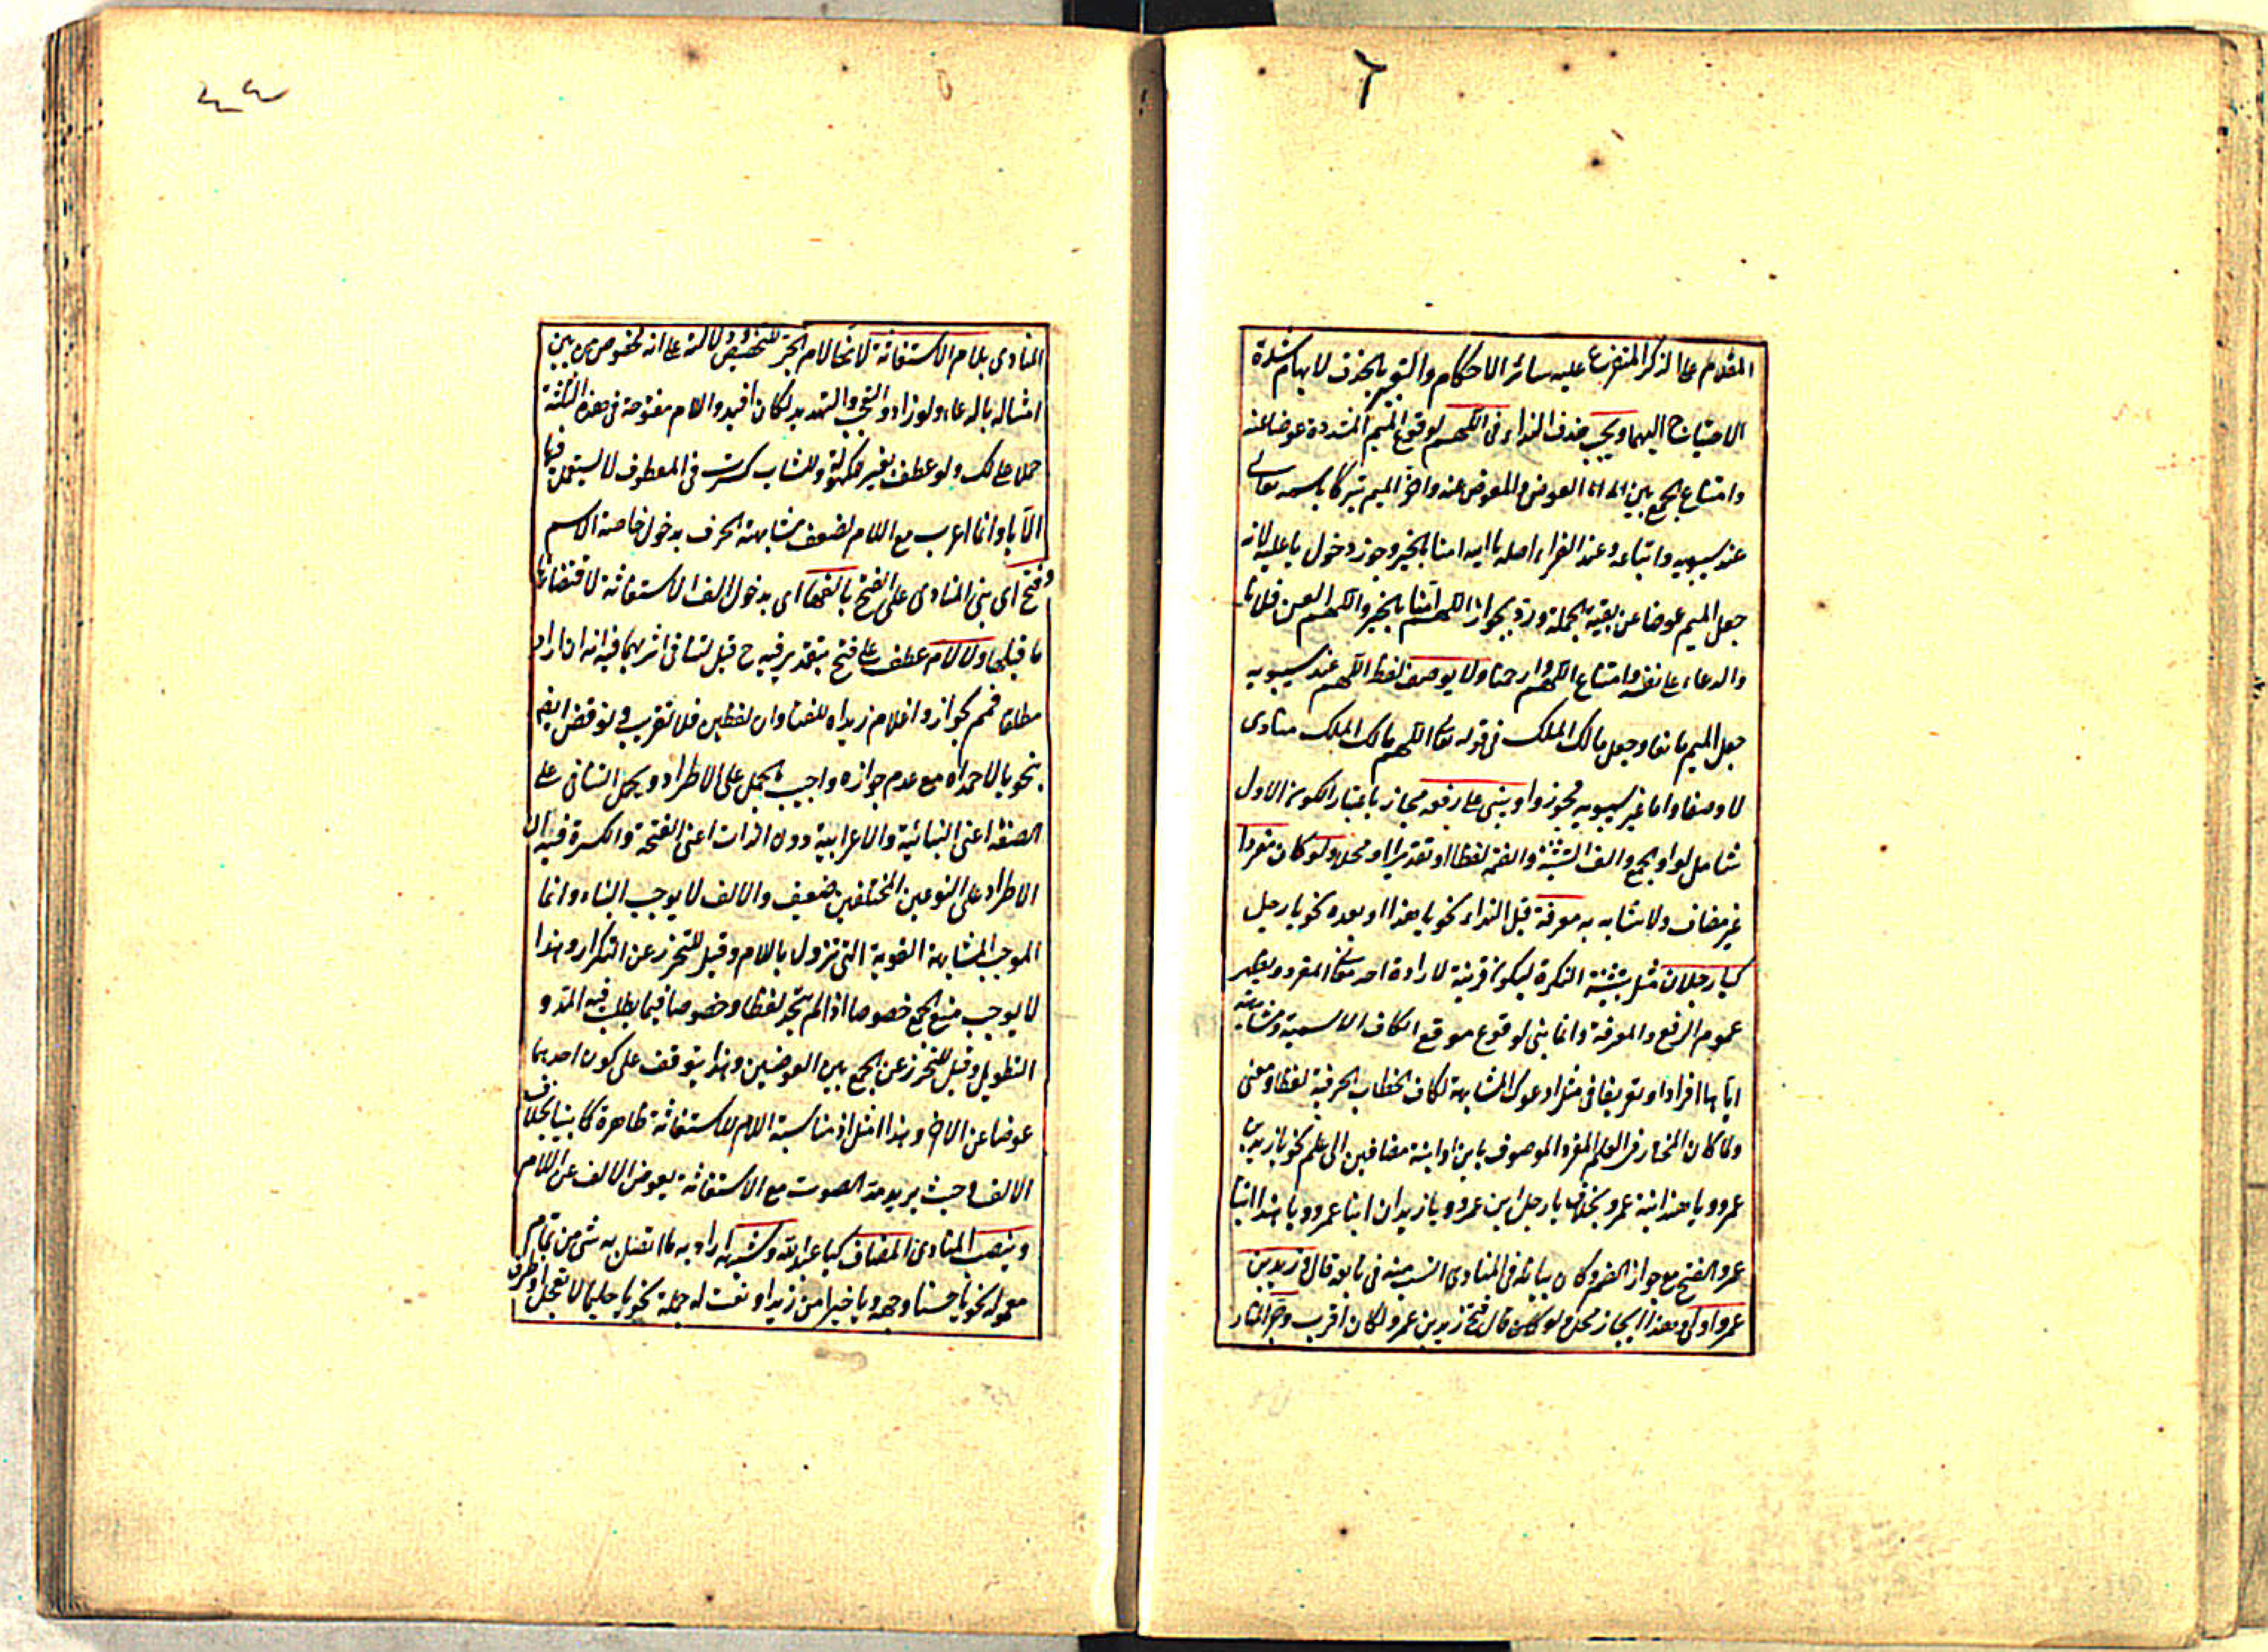 ٦
المقدم على الذكر المتفرع عليه سائر الاحكام والتعبير بالحذف لايهام شدة
الاحتياج اليهما ويجب حذف النداء فى اللهم لوقوع الميم المشددة عوضا عنه
وامتناع الجمع بين العوض والمعوض عنه واخر الميم تبركا باسمه تعالى
عند سيبويه واتباعه وعند الفراء اصله يا الله امنا بالخير وجوز دخول يا عليه لانه
جعل الميم عوضا عن بقية الجملة ورد بجواز اللهم امنا بالخير واللهم العن فلانا
والدعاء على نفسه وامتناع اللهم وارحمنا ولا يوصف لفظ اللهم عند سيبويه
جعل الميم مانعا وجعل مالك الملك فى قوله تعالى اللهم مالك الملك منادى
لا وصفا واما غير سيبويه فجوزوا ويبنى على رفعه مجاز باعتبار الكون الاول
شامل لواو الجمع والف التثنية والضمة لفظا او تقديرا او محلا ولو كان مفردا
غير مضاف ولا مشابه به معرفة قبل النداء نحو يا هذا او بعده نحو يا رجل
كيا رجلان مثل بتثنية النكرة ليكون قرينة لارادة احد معانى المفرد ويظهر
عموم الرفع والمعرفة وانما بنى لوقوع موقع الكاف الاسمية ومشابهته
اياها افرادا وتعريفا فى مثل ادعوك المشابهة لكاف الخطاب الحرفية لفظا ومعنى
ولما كان المختار فى العلم المفرد الموصوف بابن او ابنة مضافين الى علم نحو يا زيد بن
عمرو ويا هند ابنة عمرو بخلاف يا رجل ابن عمرو ويا زيدان ابنا عمرو ويا هند ابنتا
عمرو الفتح مع جواز الضم وكان بيانه فى المنادى انسب منه فى تابعه قال وزيد بن
عمرو اولى وهذا ايجاز مخل ولو قال فتح زيد بن عمرو لكان اقرب وجر المنار
المنادى بلام الاستغاثة لانها لام الجر للتخصيص دلالته على انه مخصوص من بين
امثاله بالدعاء ولو زاد والتعجب والتهديد لكان افيد واللام مفتوحة فى هذه الثلثة
حملا على لك ولو عطف بغير يا نحو يا للكهول وللشاب كسرت فى المعطوف لا يستعمل فيها
الا يا وانما اعرب مع اللام لضعف مشابهة الحرف بدخول خاصة الاسم
وفتح اى بنى المنادى على الفتح بالفها اى بدخول الف الاستغاثة لاقتضائها
ما قبلها ولا لام عطف على فتح بتقدير فيه ح قيل لتنافى اثريهما فيه انه ان اراد
مطلقا فمم لجواز واغلام زيداه للفتا وان لفظين فلا تقريب ونوقض ايضا
بنحو يا لاحمداه مع عدم جوازه واجيب بالحمل على الاطراد ويحمل التنافى على
الصفة اعنى البنائية والاعرابية دون الذات اعنى الفتحة والكسرة فيه ان
الاطراد على النوعين المختلفين ضعيف والالف لا يوجب البناء وانما
الموجب المشابهة القوية التى تزول باللام وقيل للتحرز عن التكرار وهذا
لا يوجب منع الجمع خصوصا اذا لم يتحد لفظا وخصوصا فيما يطلب فيه المد و
التطويل وقيل للتحرز عن الجمع بين العوضين وهذا يتوقف على كون احدهما
عوضا عن الاخر وهذا امثل اذ مناسبة اللام للاستغاثة ظاهرة كما بينا بخلاف
الالف وحيث يريد مد الصوت مع الاستغاثة يعوض الالف عن اللام
وينصب المنادى المضاف كيا عبد الله وشبهه اراد به ما اتصل به شئ من تمام
معموله نحو يا حسنا وجهه ويا خيرا من زيد او نعت له جملة نحو يا حليما لا تعجل او ظرف